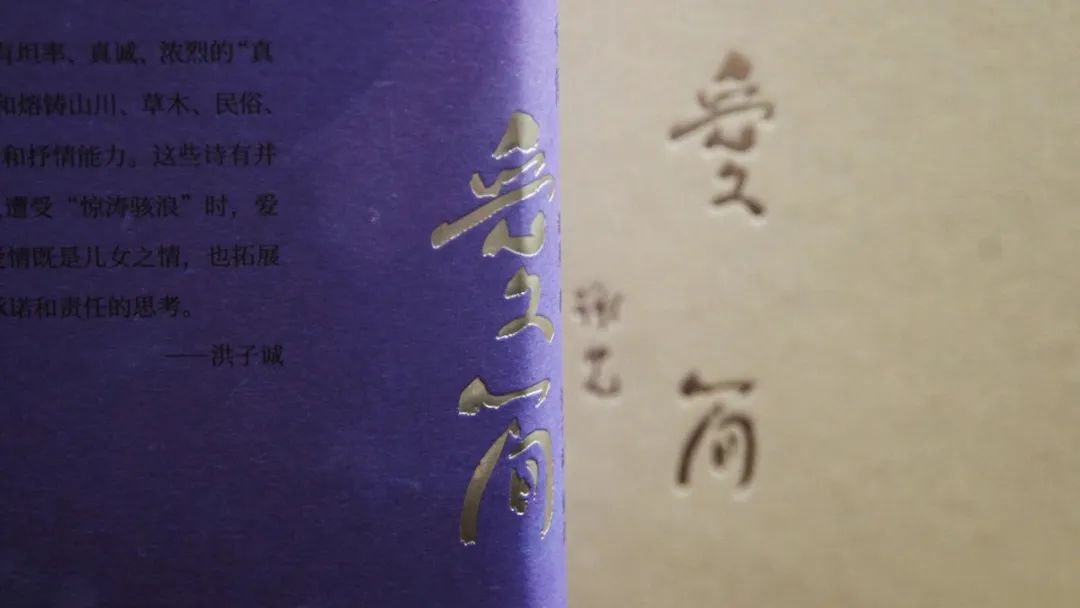 坦率、真诚、浓烈的“真
和熔铸山川、草木、民俗、
和抒情能力。这些诗有并
遭受“惊涛骇浪”时，爱
情既是儿女之情，也拓展
诺和责任的思考。
——洪子诚
爱
简
爱
简